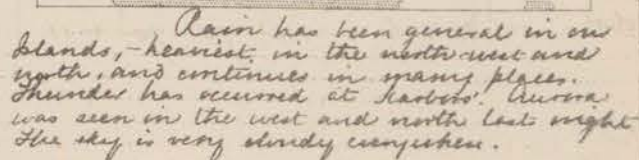 Rain has been general in our
Islands, - heaviest in the north-west and
north, and continues in many places.
Thunder has occurred at Aurora
was seen in the west and north last night
The sky is very cloudy everywhere.